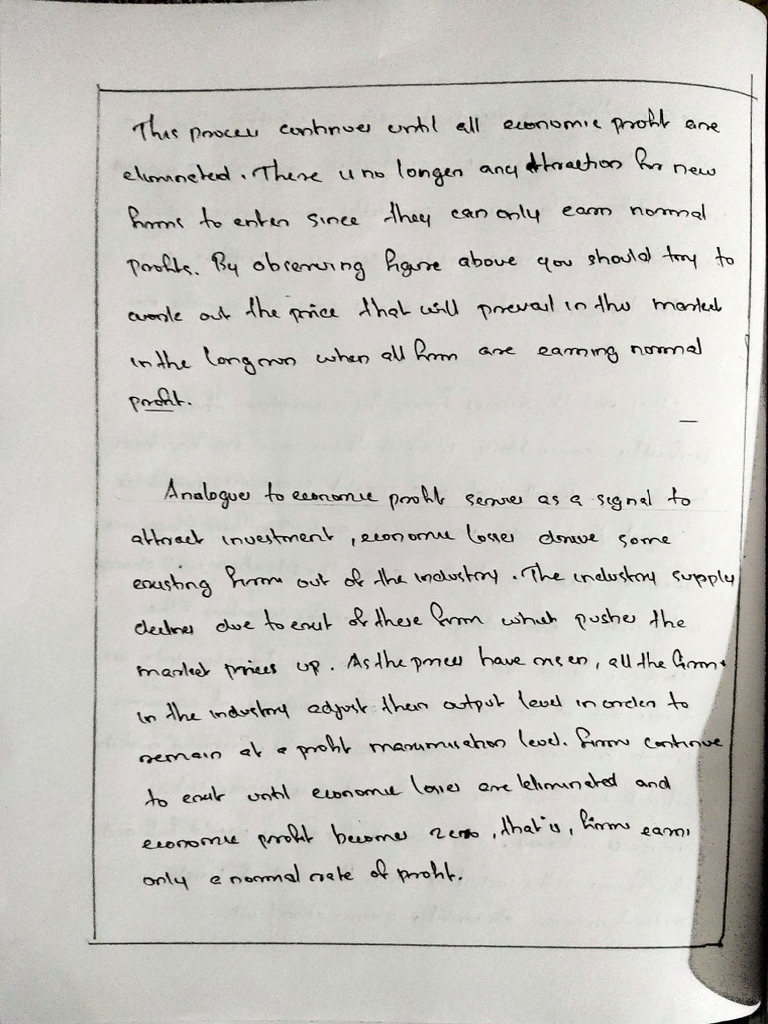 This process continues until all economic profit are
eliminated. There is no longer any attraction for new
firms to enter since they can only earn normal
profits. By observing figure above you should try to
work out the price that will prevail in this market
in the long run when all firm are earning normal
profit.
Analogues to economic profit serves as a signal to
attract investment, economic losses drive some
existing firms out of the industry. The industry supply
declines due to exit of these firm which pushes the
market prices up. As the prices have risen, all the firms
in the industry adjust their output level in order to
remain at a profit maximisation level. Firms continue
to exit until economic losses are eliminated and
economic profit becomes zero, that is, firms earns
only a normal rate of profit.